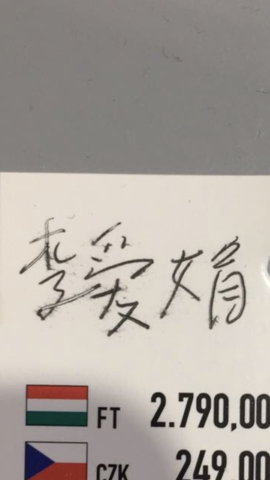 李愛娟
FT 2.790,00
CZK 249,00